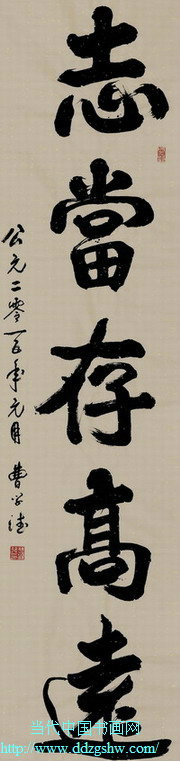 志當存高遠
公元二零一五年元月 曹學德
当代中国书画网
http://www.ddzgshw.com/